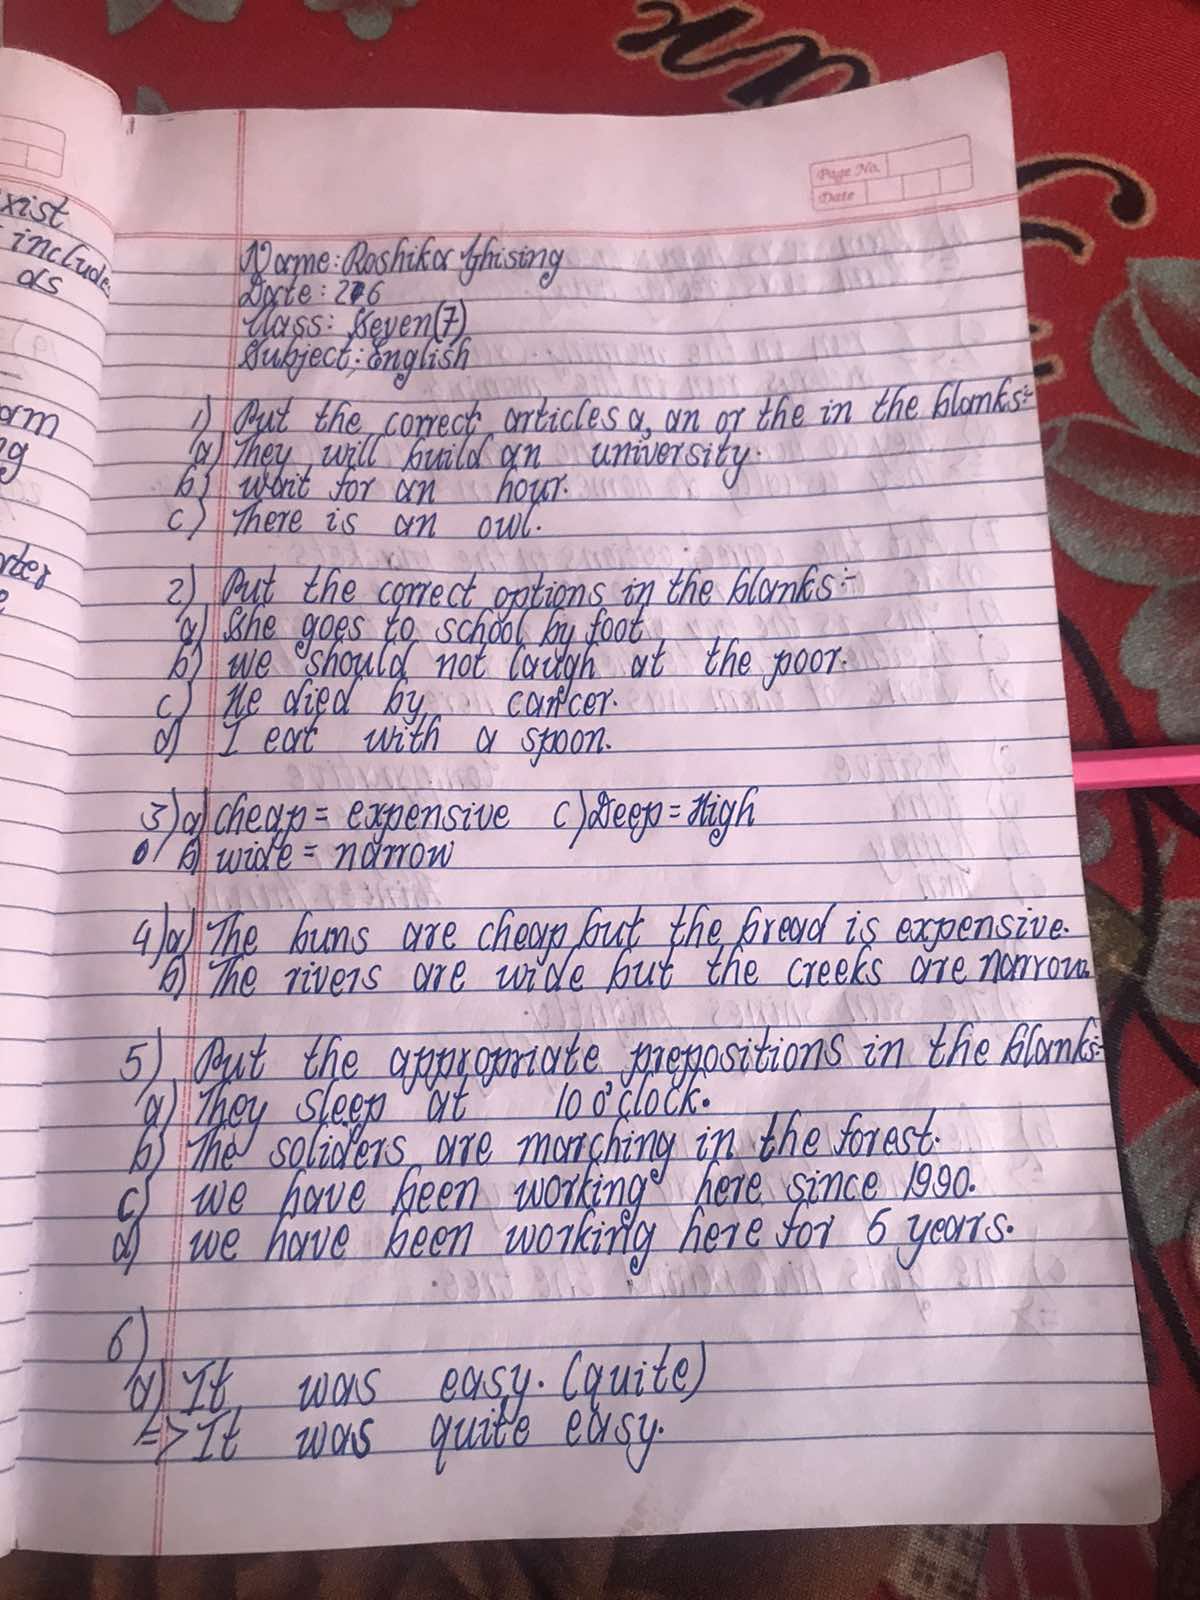 xist
include
as
am
ng
Page No.
Date
Name: Roshika Ghising
Date: 2
Class: Seven(7)
Subject: English
1) Put the correct articles a, an or the in the blanks:-
a) They will build an university.
b) wait for an hour.
c) There is an owl.
2) Put the correct options in the blanks:-
a) She goes to school by foot
b) we should not laugh at the poor.
c) He died by cancer.
d) I eat with a spoon.
3) a) cheap = expensive c) Deep = High
b) wide = narrow
4) a) The buns are cheap but the bread is expensive.
b) The rivers are wide but the creeks are narrow.
5) Put the appropriate prepositions in the blanks:-
a) They sleep at 10 o'clock.
b) The soliders are marching in the forest.
c) we have been working here since 1990.
d) we have been working here for 6 years.
6)
a) It was easy. (quite)
=> It was quite easy.